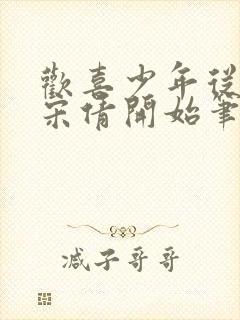 歡喜少年從
宋倩開始筆
减子哥哥